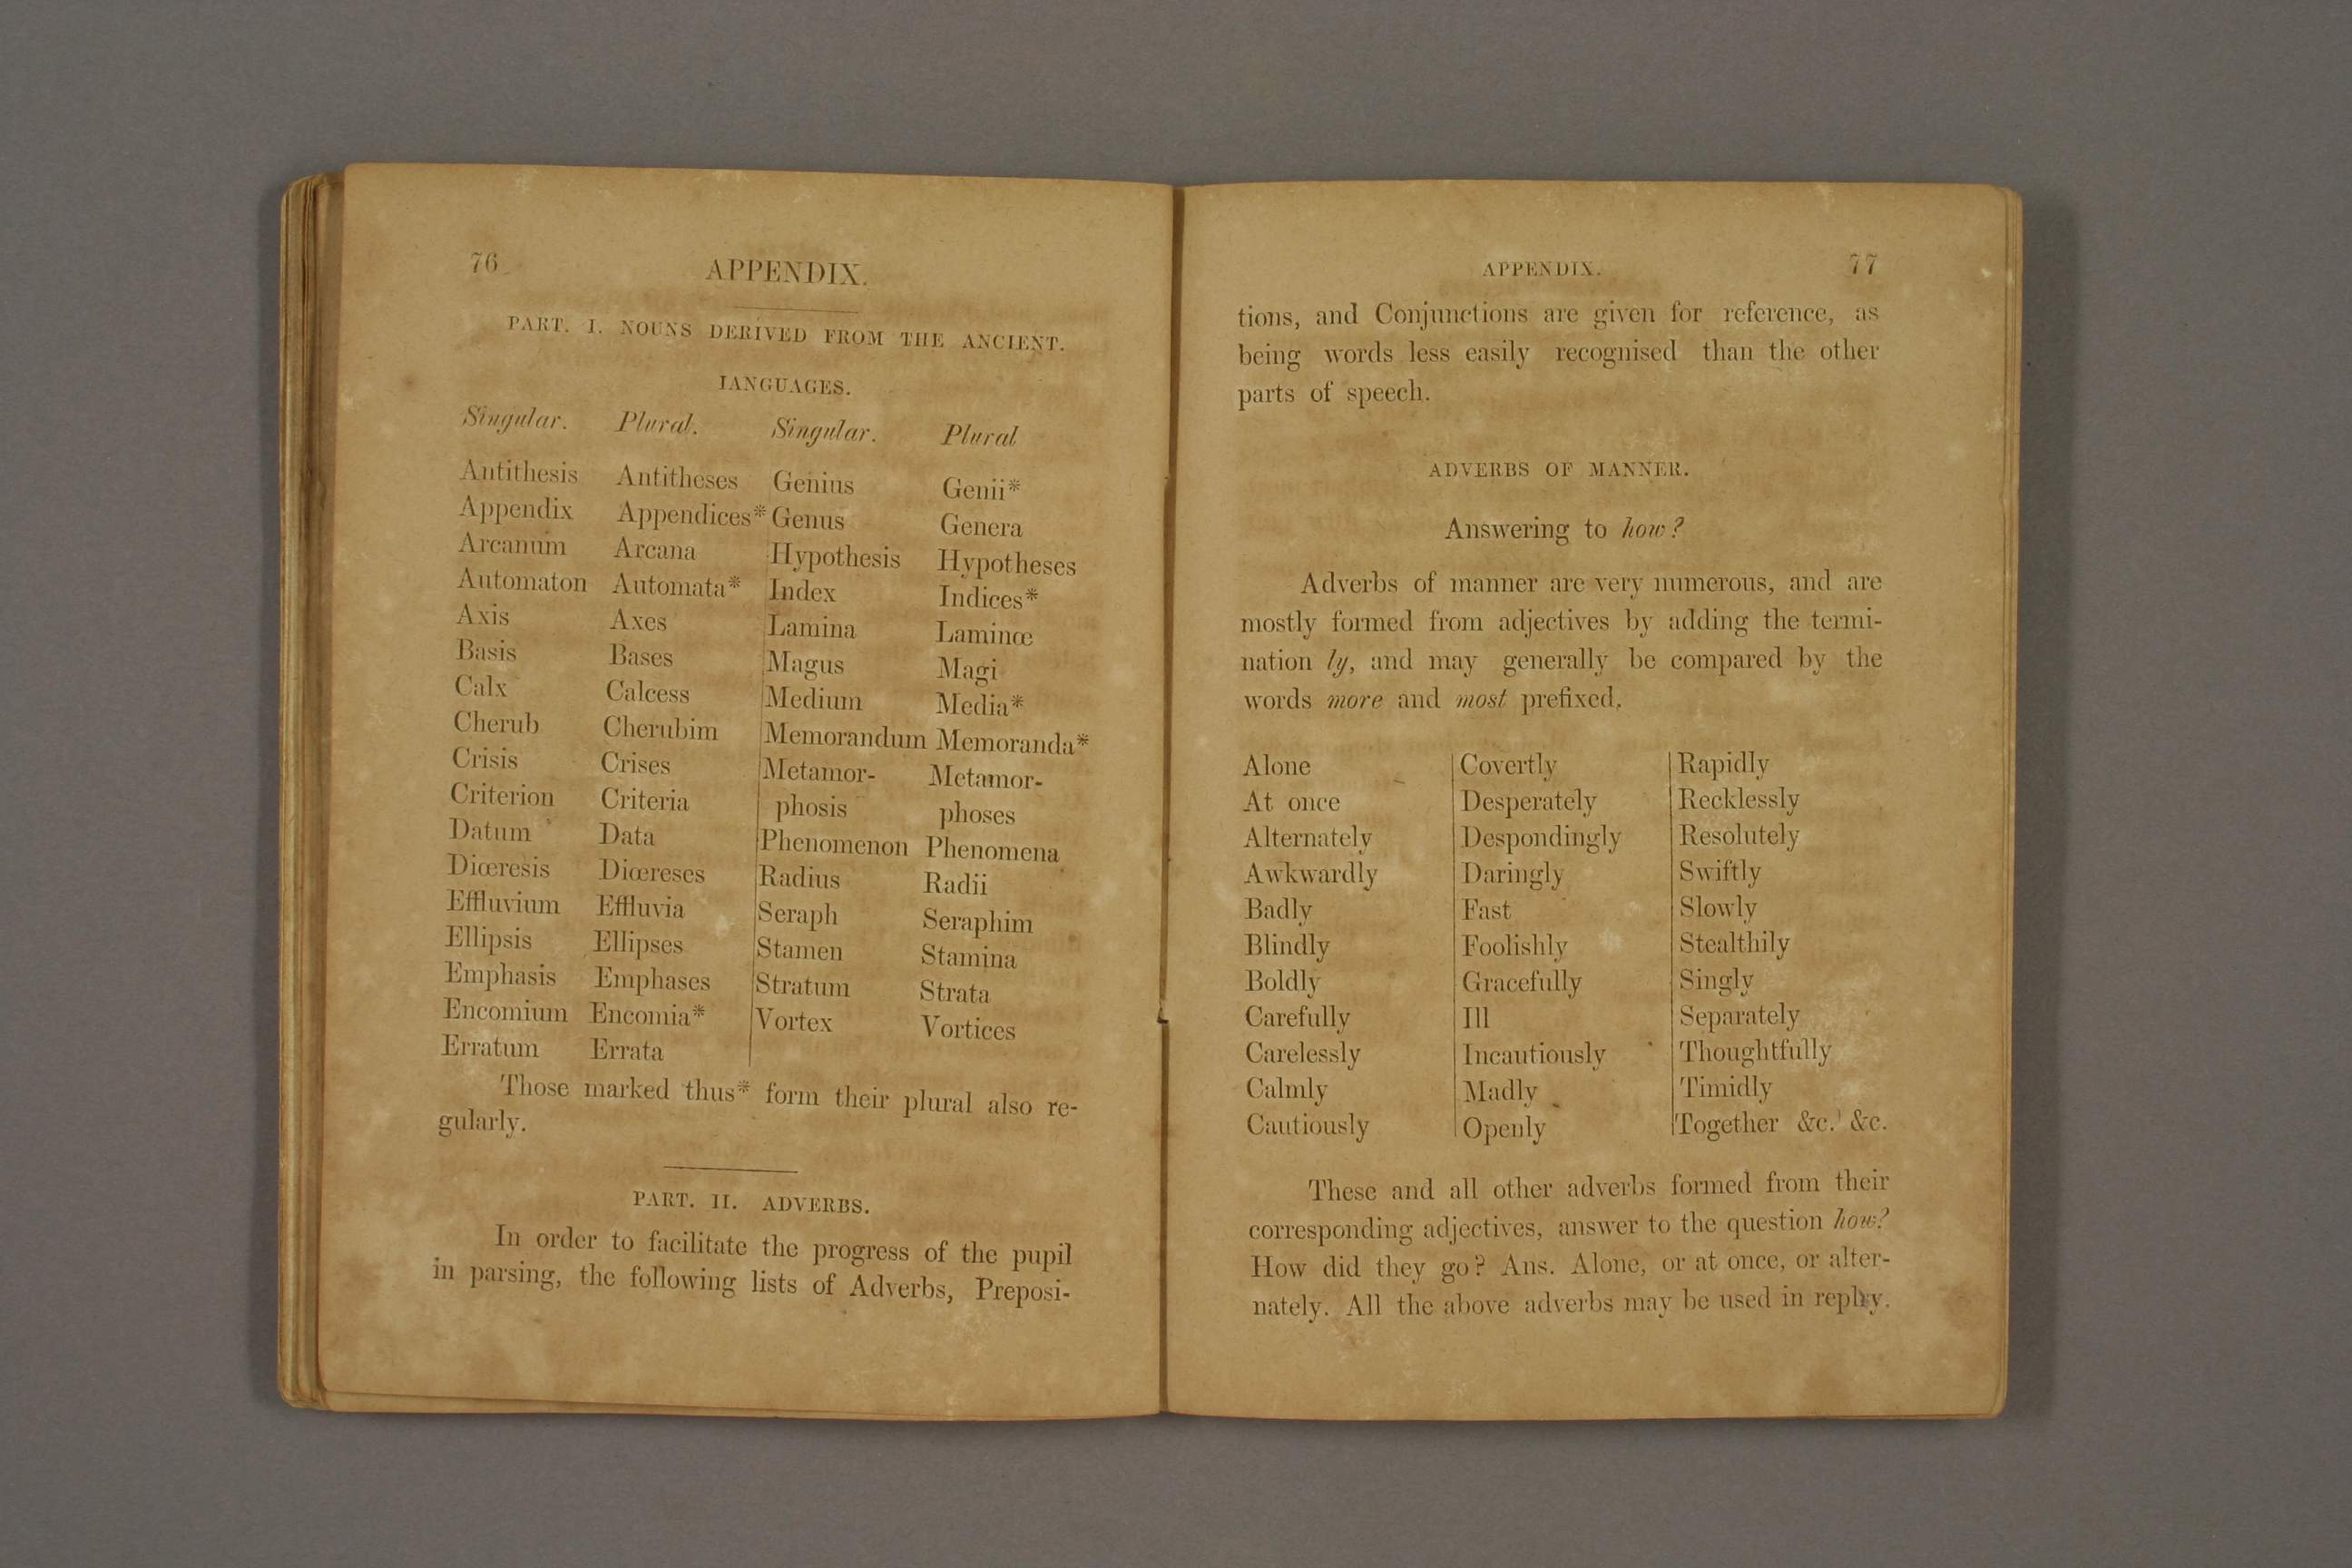 76
APPENDIX.
PART. I. NOUNS DERIVED FROM THE ANCIENT.
IANGUAGES.
Singular. Plural. Singular. Plural
Antithesis Antitheses Genius Genii*
Appendix Appendices* Genus Genera
Arcanum Arcana Hypothesis Hypotheses
Automaton Automata* Index Indices*
Axis Axes Lamina Laminœ
Basis Bases Magus Magi
Calx Calcess Medium Media*
Cherub Cherubim Memorandum Memoranda*
Crisis Crises Metamor- Metamor-
Criterion Criteria phosis phoses
Datum Data Phenomenon Phenomena
Diœresis Diœreses Radius Radii
Effluvium Effluvia Seraph Seraphim
Ellipsis Ellipses Stamen Stamina
Emphasis Emphases Stratum Strata
Encomium Encomia* Vortex Vortices
Erratum Errata
Those marked thus* form their plural also re-
gularly.
PART. II. ADVERBS.
In order to facilitate the progress of the pupil
in parsing, the following lists of Adverbs, Preposi-
APPENDIX. 77
tions, and Conjunctions are given for reference, as
being words less easily recognised than the other
parts of speech.
ADVERBS OF MANNER.
Answering to how?
Adverbs of manner are very numerous, and are
mostly formed from adjectives by adding the termi-
nation ly, and may generally be compared by the
words more and most prefixed.
Alone Covertly Rapidly
At once Desperately Recklessly
Alternately Despondingly Resolutely
Awkwardly Daringly Swiftly
Badly Fast Slowly
Blindly Foolishly Stealthily
Boldly Gracefully Singly
Carefully Ill Separately
Carelessly Incautiously Thoughtfully
Calmly Madly Timidly
Cautiously Openly Together &c. &c.
These and all other adverbs formed from their
corresponding adjectives, answer to the question how?
How did they go? Ans. Alone, or at once, or alter-
nately. All the above adverbs may be used in reply.